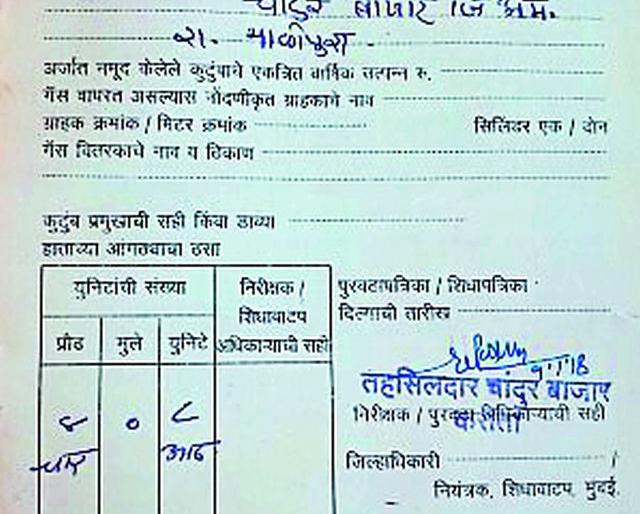 चांदुर बाजार जि. अम.
रा. माळीपुरा
अर्जात नमूद केलेले कुटुंबाचे एकत्रित वार्षिक उत्पन्न रु.
गॅस वापरत असल्यास नोंदणीकृत ग्राहकाचे नाव
ग्राहक क्रमांक / मिटर क्रमांक सिलिंडर एक / दोन
गॅस वितरकाचे नाव व ठिकाण
कुटुंब प्रमुखाची सही किंवा डाव्या
हाताच्या आंगठ्याचा ठसा
युनिटांची संख्या
प्रौढ मुले युनिटे
निरीक्षक /
शिधावाटप
अधिकाऱ्याची सही
४ ० ८
चार आठ
पुरवठापत्रिका / शिधापत्रिका
दिल्याची तारीख
9.1.18
तहसिलदार चांदुर बाजार
करीता
निरीक्षक / पुरवठा अधिकाऱ्याची सही
जिल्हाधिकारी /
नियंत्रक, शिधावाटप, मुंबई.